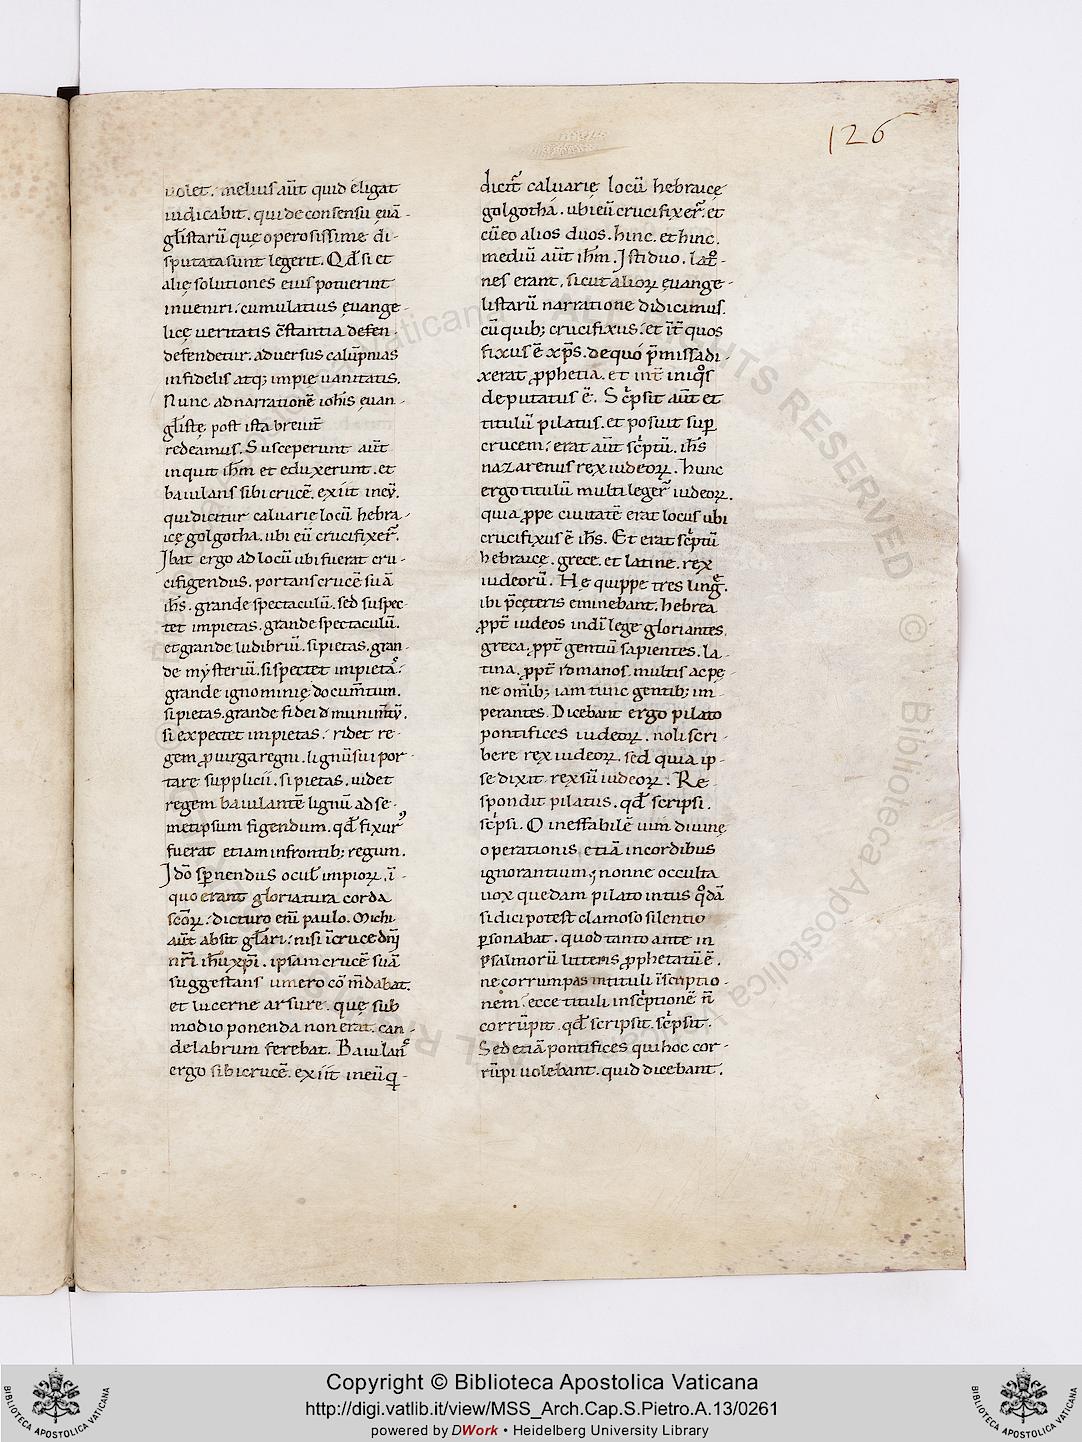 126
uolet. melius aut̄ quid eligat
iudicabit. qui de consensu euā-
gl̄istarū quę operosissime di-
sputata sunt legerit. Qđ si et
alię solutiones eius potuerint
inueniri. cumulatius euange-
licę ueritatis c̄stantia defen-
defendetur. aduersus calūpnias
infidelis atq; impię uanitatis.
Nunc ad narrationē ioh̄is euan-
gl̄istę post ista breuit̄
redeamus. Susceperunt aut̄
inquit ih̄m et eduxerunt. et
baiulans sibi crucē. exiit in eū.
qui dicitur caluarię locū hebra-
icę golgotha. ubi eū crucifixer̄.
Ibat ergo ad locū ubi fuerat cru-
cifigendus. portans crucē suā
ih̄s. grande spectaculū. sed si spec-
tet impietas. grande spectaculū.
et grande ludibriū. si pietas. gran-
de mysteriū. si spectet impietas.
grande ignominię documm̄tum.
si pietas. grande fidei munimm̄tū.
si expectet impietas. ridet re-
gem ꝓ uirga regni. lignū sui por-
tare supplicii. si pietas. uidet
regem baiulantē lignū ad se-
metipsum figendum. qđ fixur᾽
fuerat etiam in frontib; regum.
Ido sp̄nendus ocul̄ impioꝝ. ī-
quo erant gloriatura corda
sc̄oꝝ. dicturo eni paulo. Michi
aut̄ absit gl̄ari. nisi ī cruce dn̄i
nr̄i ih̄u xp̄i. ipsam crucē suā
suggestans umero cōm̄dabat.
et lucerne arsure. quę sub
modio ponenda non erat. can-
delabrum ferebat. Baiulans
ergo sibi crucē. exiit in eū q̄i-
dicit̄ caluarię locū hebraicę
golgotha. ubi eū crucifixer̄. et
cū eo alios duos. hinc. et hinc.
mediū aut̄ ih̄m. Isti duo. lat̄-
nes erant. sicut alioꝝ euange-
listarū narratione didicimus.
cū quib; crucifixus. et int̄ quos
fixus ē xp̄s. de quo p̄missa di-
xerat ꝓphetia. et int̄ iniq̊s
deputatus ē. Sc̄psit aut̄ et
titulū pilatus. et posuit sup̄
crucem. erat aut̄ sc̄ptū. ih̄s
nazarenus rex iudeoꝝ. hunc
ergo titulū multi leger̄ iudeoꝝ.
quia ꝓpe ciuitatē erat locus ubi
crucifixus ē ih̄s. Et erat sc̄ptū
hebraicę. grece. et latine. rex
iudeorū. Hę quippe tres lingę.
ibi p̄ cęteris eminebant. hebrea
ꝓpt̄ iudeos in dī lege gloriantes.
greca. ꝓpt̄ gentiū sapientes. la-
tina. ꝓpt̄ romanos. multis ac pę-
ne om̄ib; iam tunc gentib; im-
perantes. Dicebant ergo pilato
pontifices iudeoꝝ. noli scri-
bere rex iudeoꝝ. sed quia ip-
se dixit rex sū iudeoꝝ. Re-
spondit pilatus. qđ scripsi.
sc̄psi. O ineffabilē uim diuinę
operationis etiā in cordibus
ignorantium. nonne occulta
uox quedam pilato intus q̄dā
si dici potest clamoso silentio
ꝑsonabat. quod tanto ante in
psalmorū litteris ꝓphetatū ē.
ne corrumpas in tituli īscriptio-
nem. ecce tituli insc̄ptionē n̄
corrūpit. qđ scripsit. sc̄psit.
Sed etiā pontifices qui hoc cor-
rūpi uolebant. quid dicebant.
Copyright © Biblioteca Apostolica Vaticana
http://digi.vatlib.it/view/MSS_Arch.Cap.S.Pietro.A.13/0261
powered by DWork • Heidelberg University Library